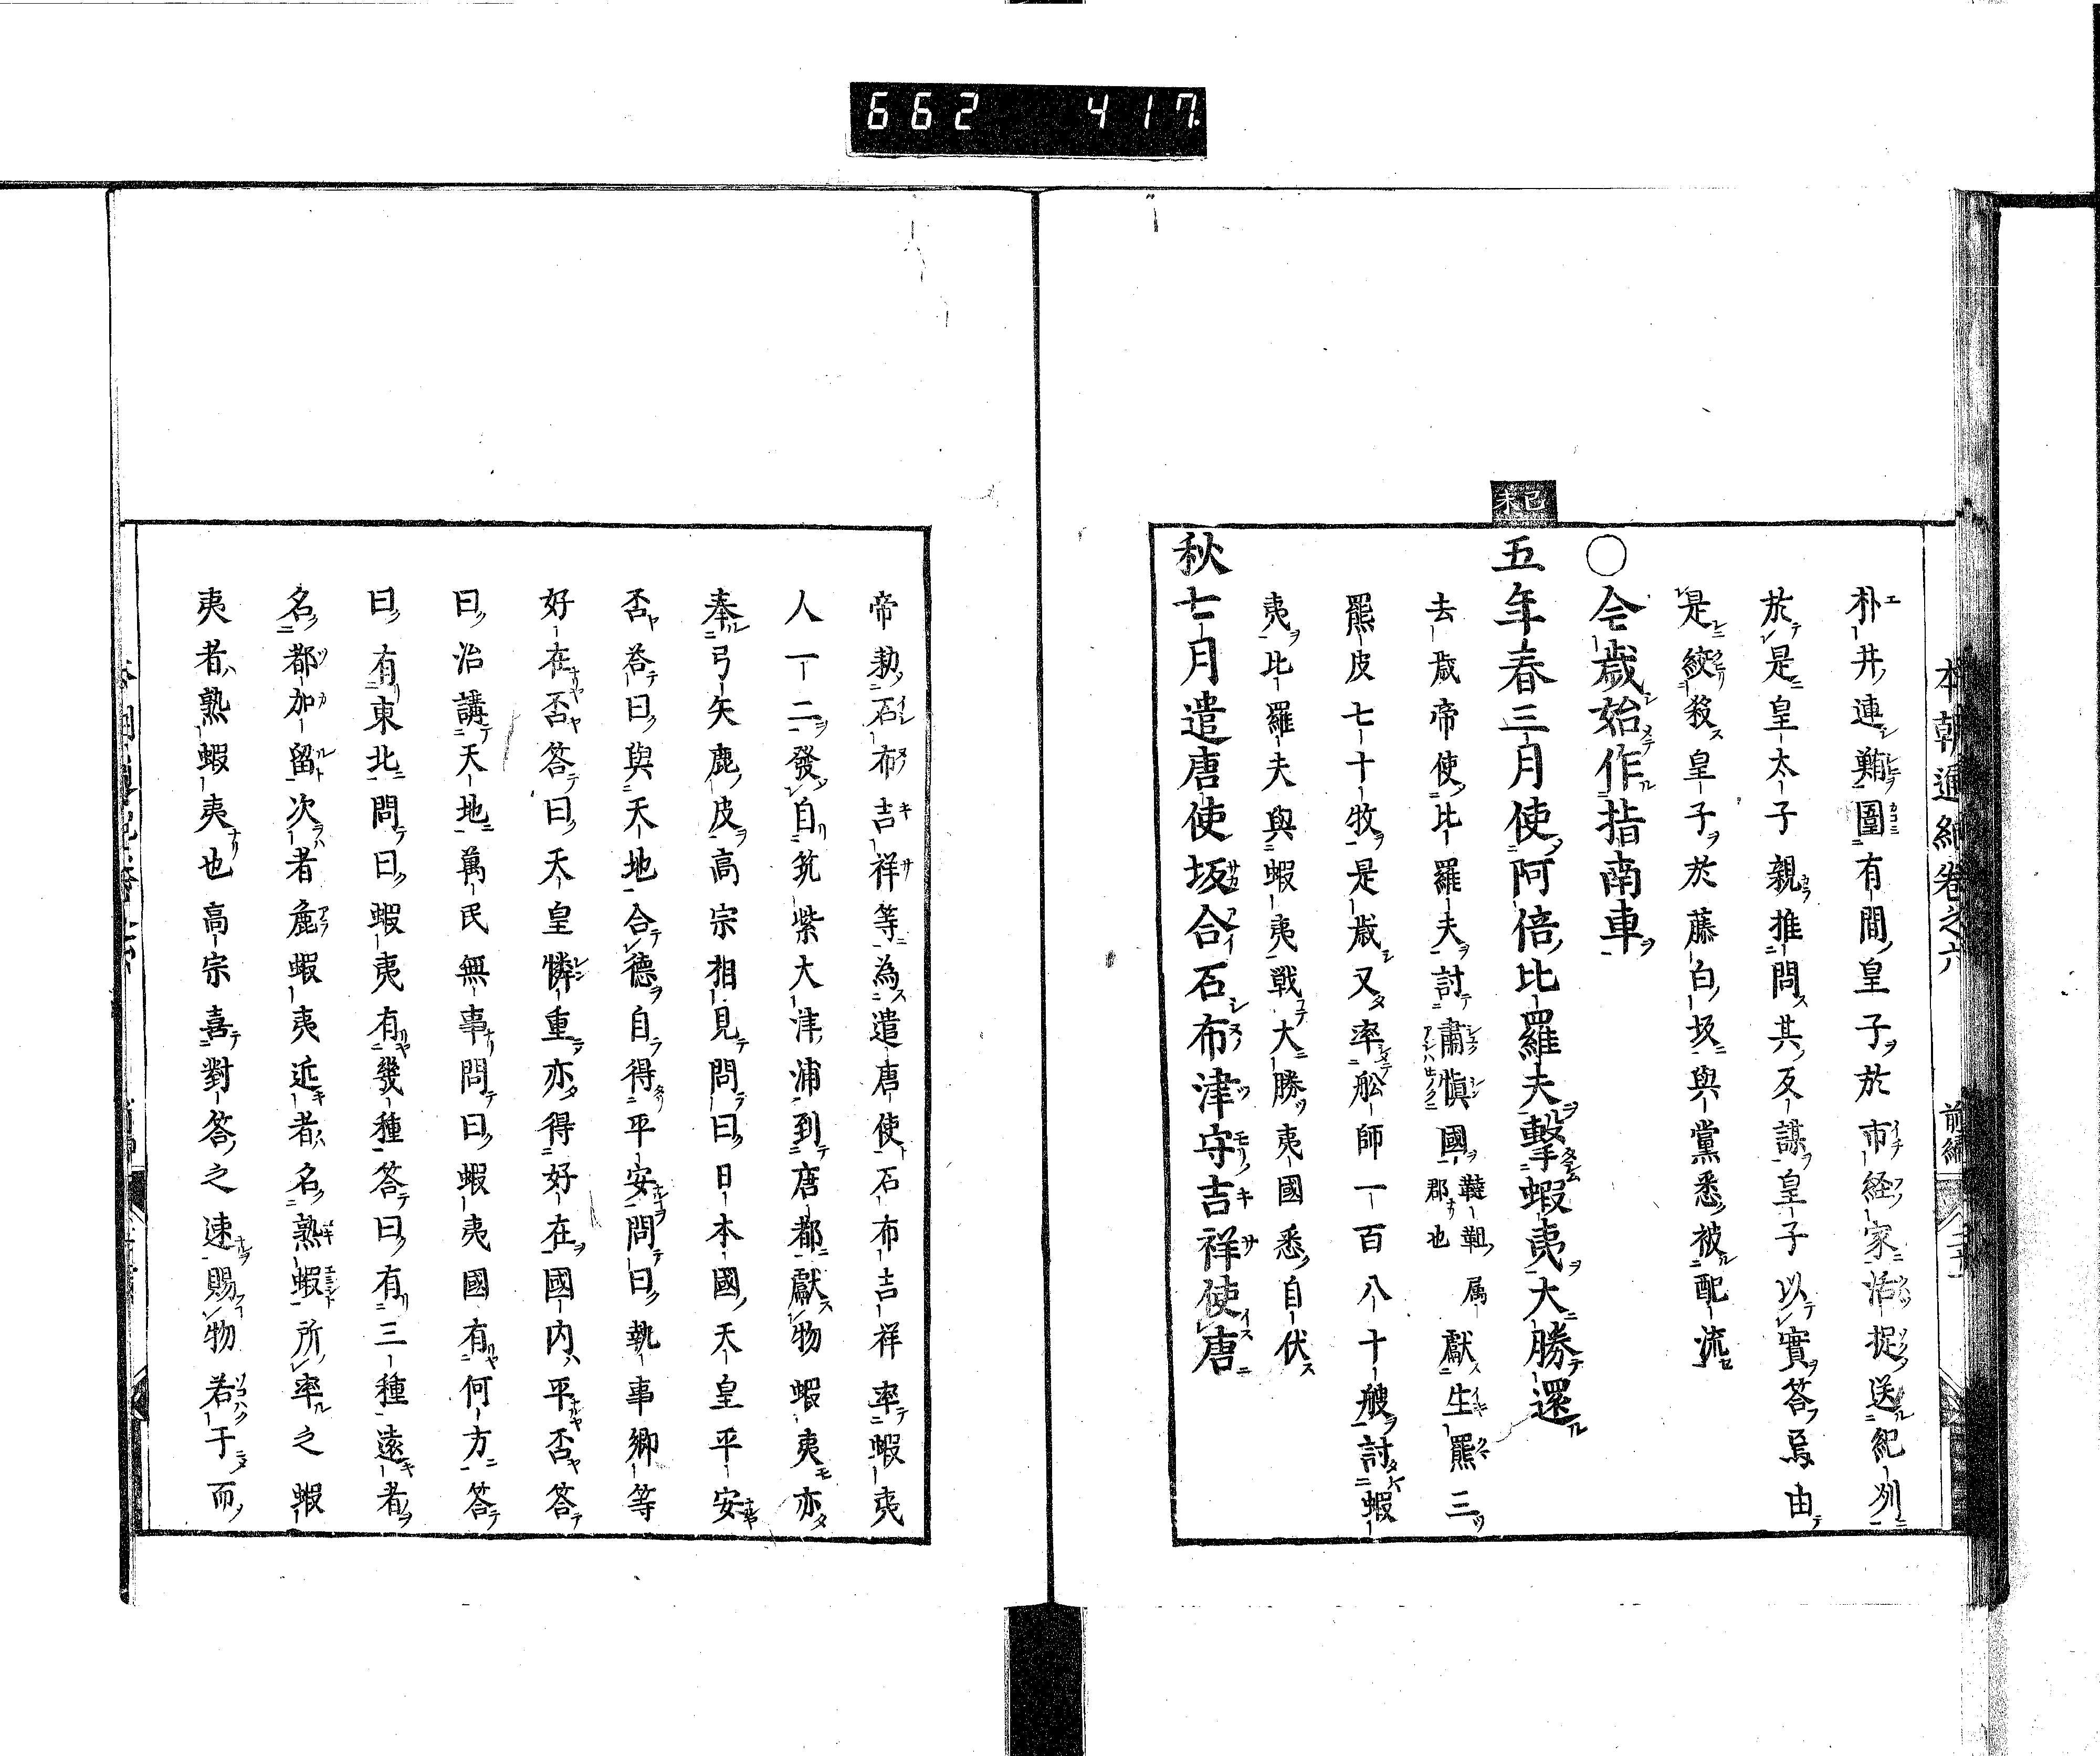 662 417
本朝通紀卷之六 前編
朴井連鮪圍有間皇子於市経家活捉送紀列
於是皇太子親推問其反謀皇子以實答焉由
是絞殺皇子於藤白坂與黨悉被配流
○今歳始作指南車
己未
五年春三月使阿倍比羅夫擊蝦夷大勝還
去歳帝使比羅夫討肅愼國靺鞨属郡也獻生羆三
羆皮七十牧是歳又率舩師一百八十艘討蝦
夷比羅夫與蝦夷戦大勝夷國悉自伏
秋七月遣唐使坂合石布津守吉祥使唐
帝勅石布吉祥等為遣唐使石布吉祥率蝦夷
人一二發自筑紫大津浦到唐都獻物蝦夷亦
奉弓矢鹿皮高宗相見問曰日本國天皇平安
否答曰與天地合德自得平安問曰執事卿等
好在否答曰天皇憐重亦得好在國内平否答
曰治講天地萬民無事問曰蝦夷國有何方答
曰有東北問曰蝦夷有幾種答曰有三種遠者
名都加留次者麁蝦夷近者名熟蝦所率之蝦
夷者熟蝦夷也高宗喜對答之速賜物若干而